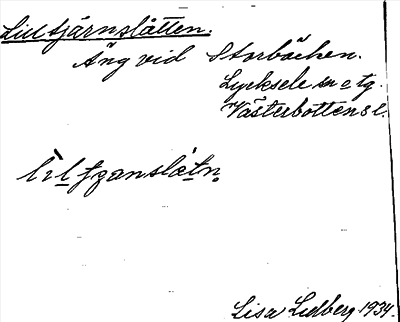 Lilltjärnslåtten.
Äng vid Storbäcken.
Lycksele sn o tg.
Västerbottens l.
Lisa Lidberg 1934.